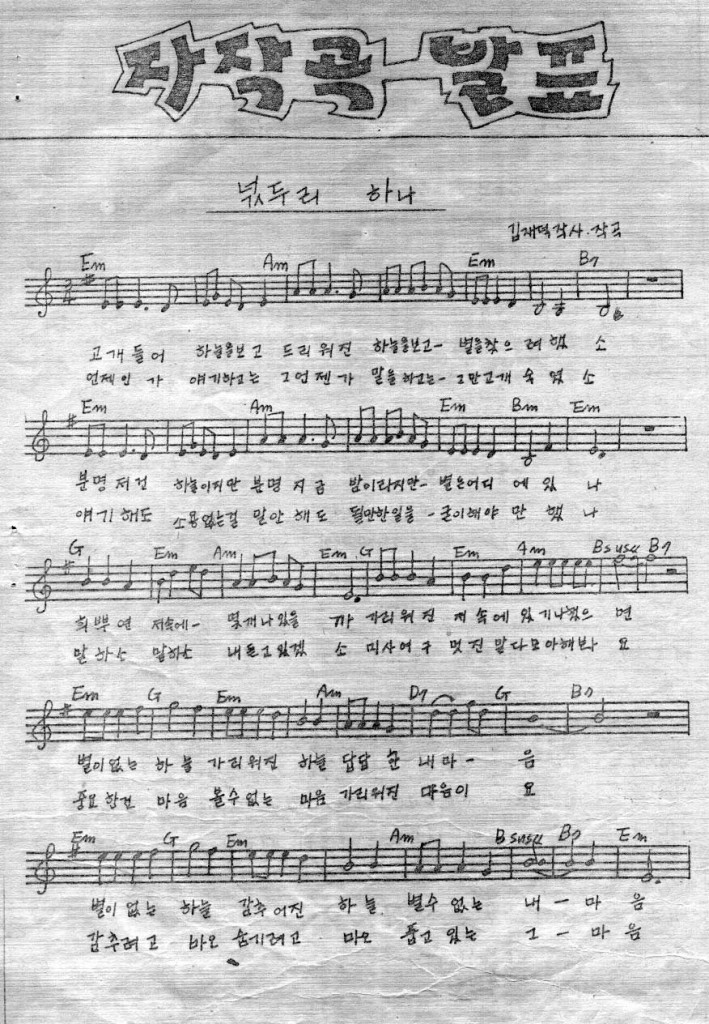 자작곡-발표
넋두리 하나
김재덕작사.작곡
Em Am Em B7
고개들어 하늘을보고 드리워진 하늘을보고- 별을찾으려했소
언제인가 얘기하고는 그언젠가 말을하고는- 그만고개숙였소
Em Am Em Bm Em
분명저건 하늘이지만 분명지금 밤이라지만- 별은어디에있나
얘기해도 소용없는걸 말안해도 될만한일을- 굳이해야만했나
G Em Am Em G Em Am Bsus4 B7
희뿌연 저속에- 몇개나있을까 가리워진 저속에 있기나했으면
말하소 말하소 내듣고있겠소 미사여구 멋진말다모아해보아요
Em G Em Am D7 G B7
별이없는 하늘 가리워진 하늘 답답한 내마-음
중요한건 마음 볼수없는 마음 가리워진 마음이요
Em G Em Am Bsus4 B7 Em
별이없는 하늘 감추어진 하늘 별수없는 내-마음
감추려고 마오 숨기려고 마오 품고있는 그-마음